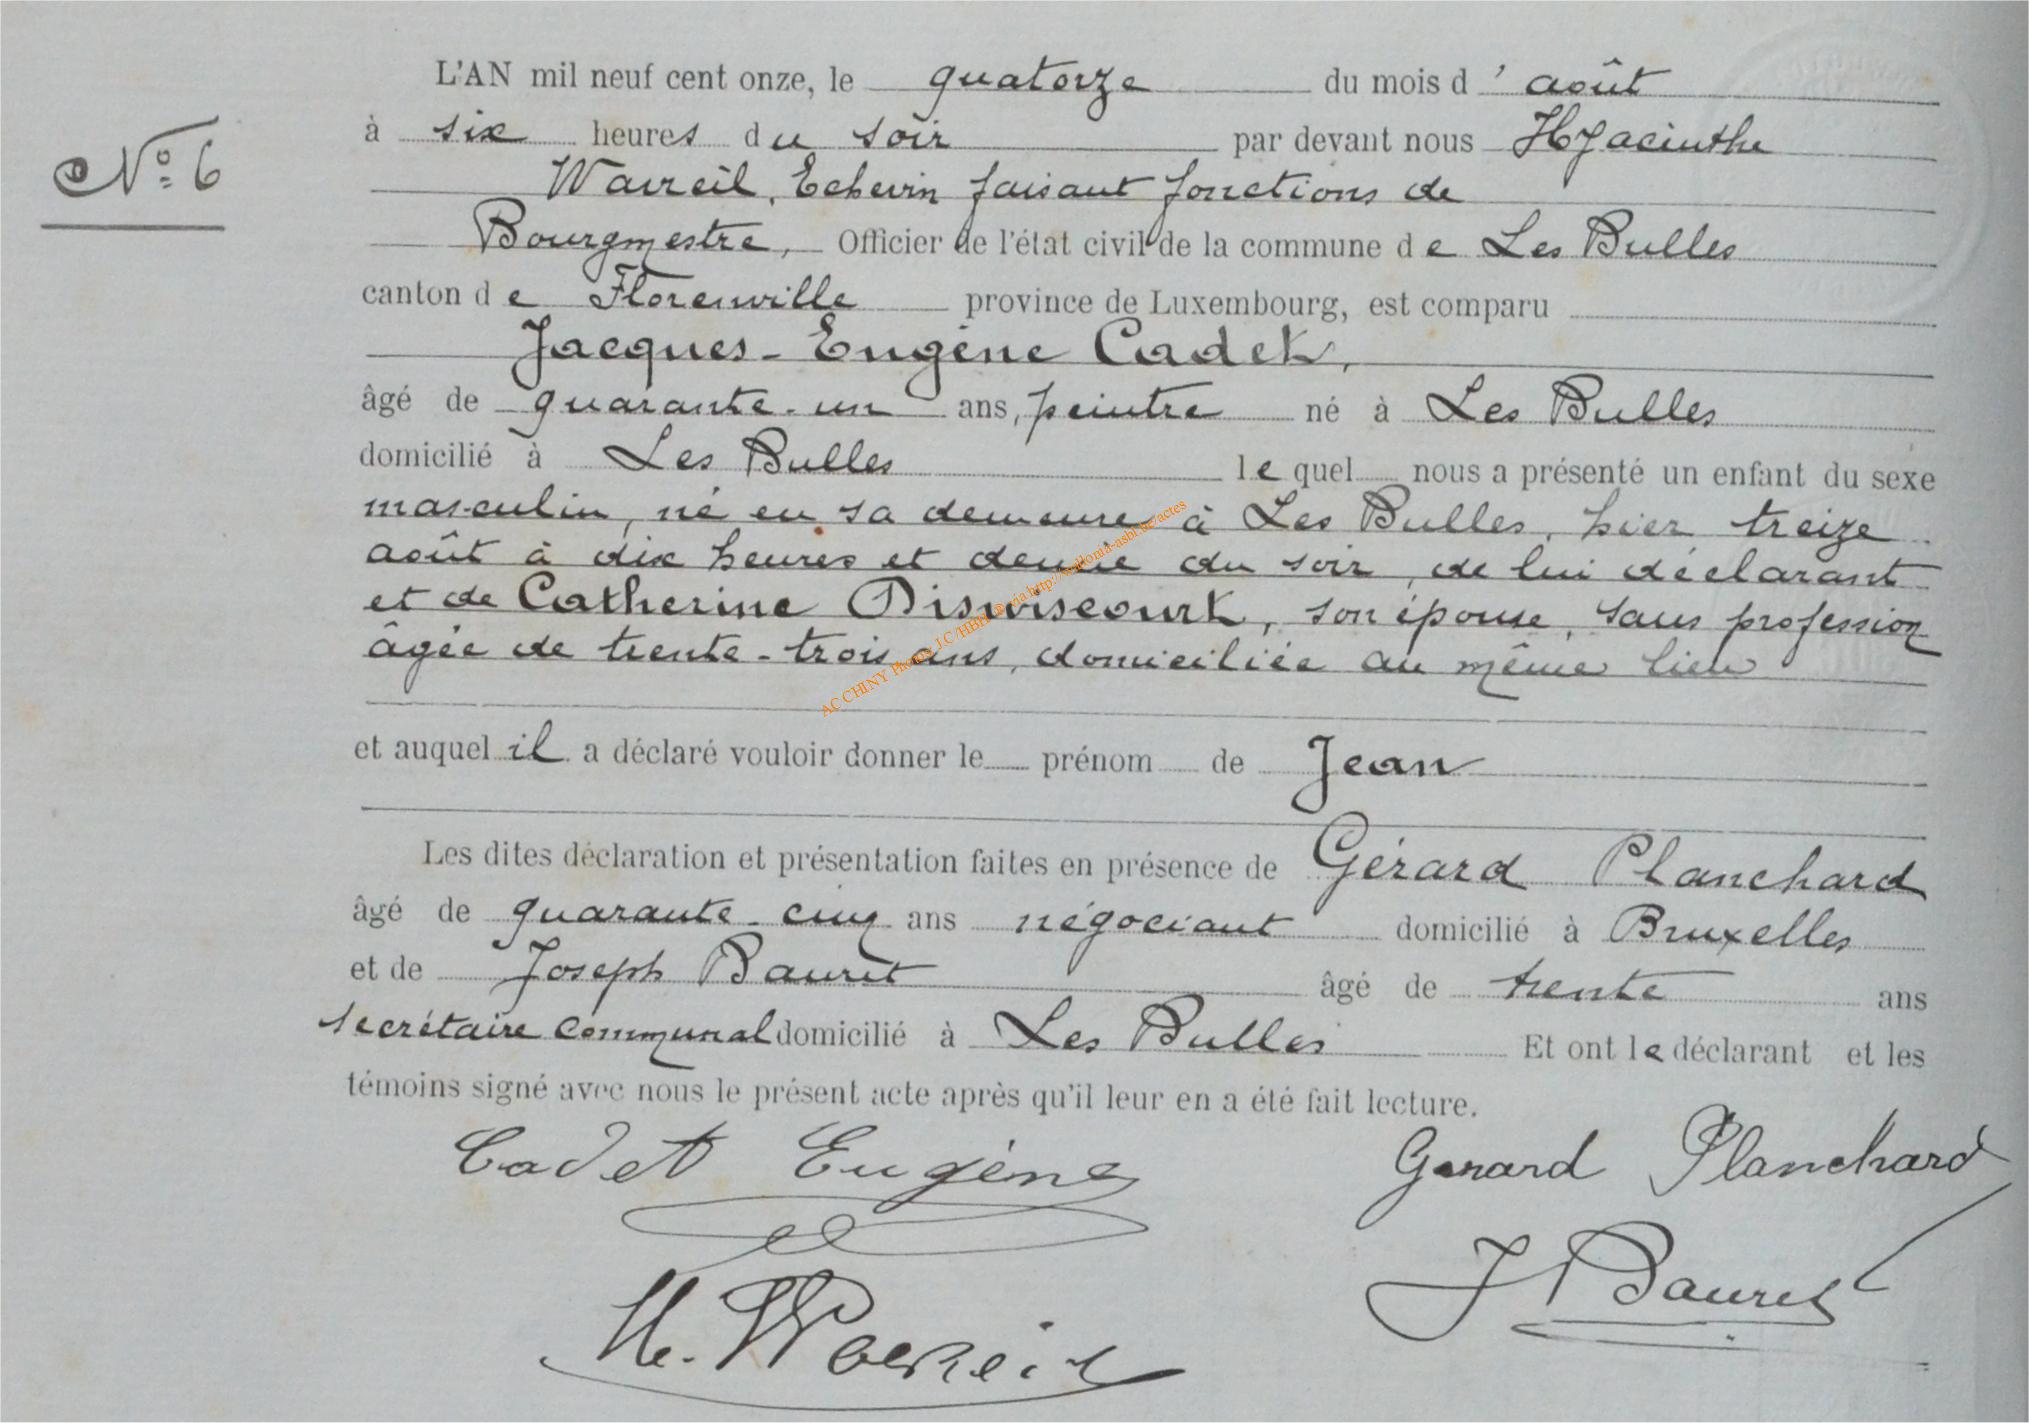 L'AN mil neuf cent onze, le quatorze du mois d'août
No 6
à six heures du soir par devant nous Hyacinthe
Wavreil, Echevin faisant fonctions de
Bourgmestre, Officier de l'état civil de la commune de Les Bulles
canton de Florenville province de Luxembourg, est comparu
Jacques-Eugène Cadet,
âgé de quarante-un ans, peintre né à Les Bulles
domicilié à Les Bulles lequel nous a présenté un enfant du sexe
masculin, né en sa demeure à Les Bulles, hier treize
août à dix heures et demie du soir, de lui déclarant
et de Catherine Disviscourt, son épouse, sans profession
âgée de trente-trois ans, domiciliée au même lieu
AC CHINY Photos J.C/HBH via http://wallonia-asbl.be/actes
et auquel il a déclaré vouloir donner le prénom de Jean
Les dites déclaration et présentation faites en présence de Gérard Planchard
âgé de quarante-cinq ans négociant domicilié à Bruxelles
et de Joseph Bauret âgé de trente ans
secrétaire communal domicilié à Les Bulles Et ont le déclarant et les
témoins signé avec nous le présent acte après qu'il leur en a été fait lecture.
Cadet Eugène Gerard Planchard
J Bauret
H. Wavreil